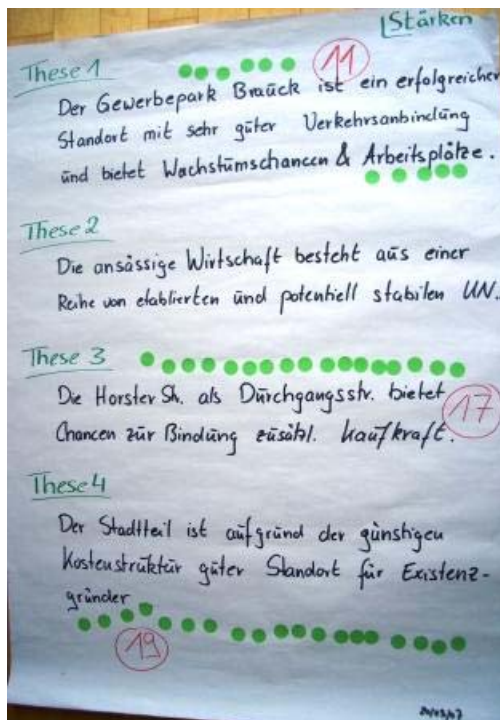 Stärken
These 1
11
Der Gewerbepark Brauck ist ein erfolgreicher
Standort mit sehr guter Verkehrsanbindung
und bietet Wachstumschancen & Arbeitsplätze.
These 2
Die ansässige Wirtschaft besteht aus einer
Reihe von etablierten und potentiell stabilen UN.
These 3
Die Horster Str. als Durchgangsstr. bietet
17
Chancen zur Bindung zusätzl. Kaufkraft.
These 4
Der Stadtteil ist aufgrund der günstigen
Kostenstruktur guter Standort für Existenz-
gründer
19